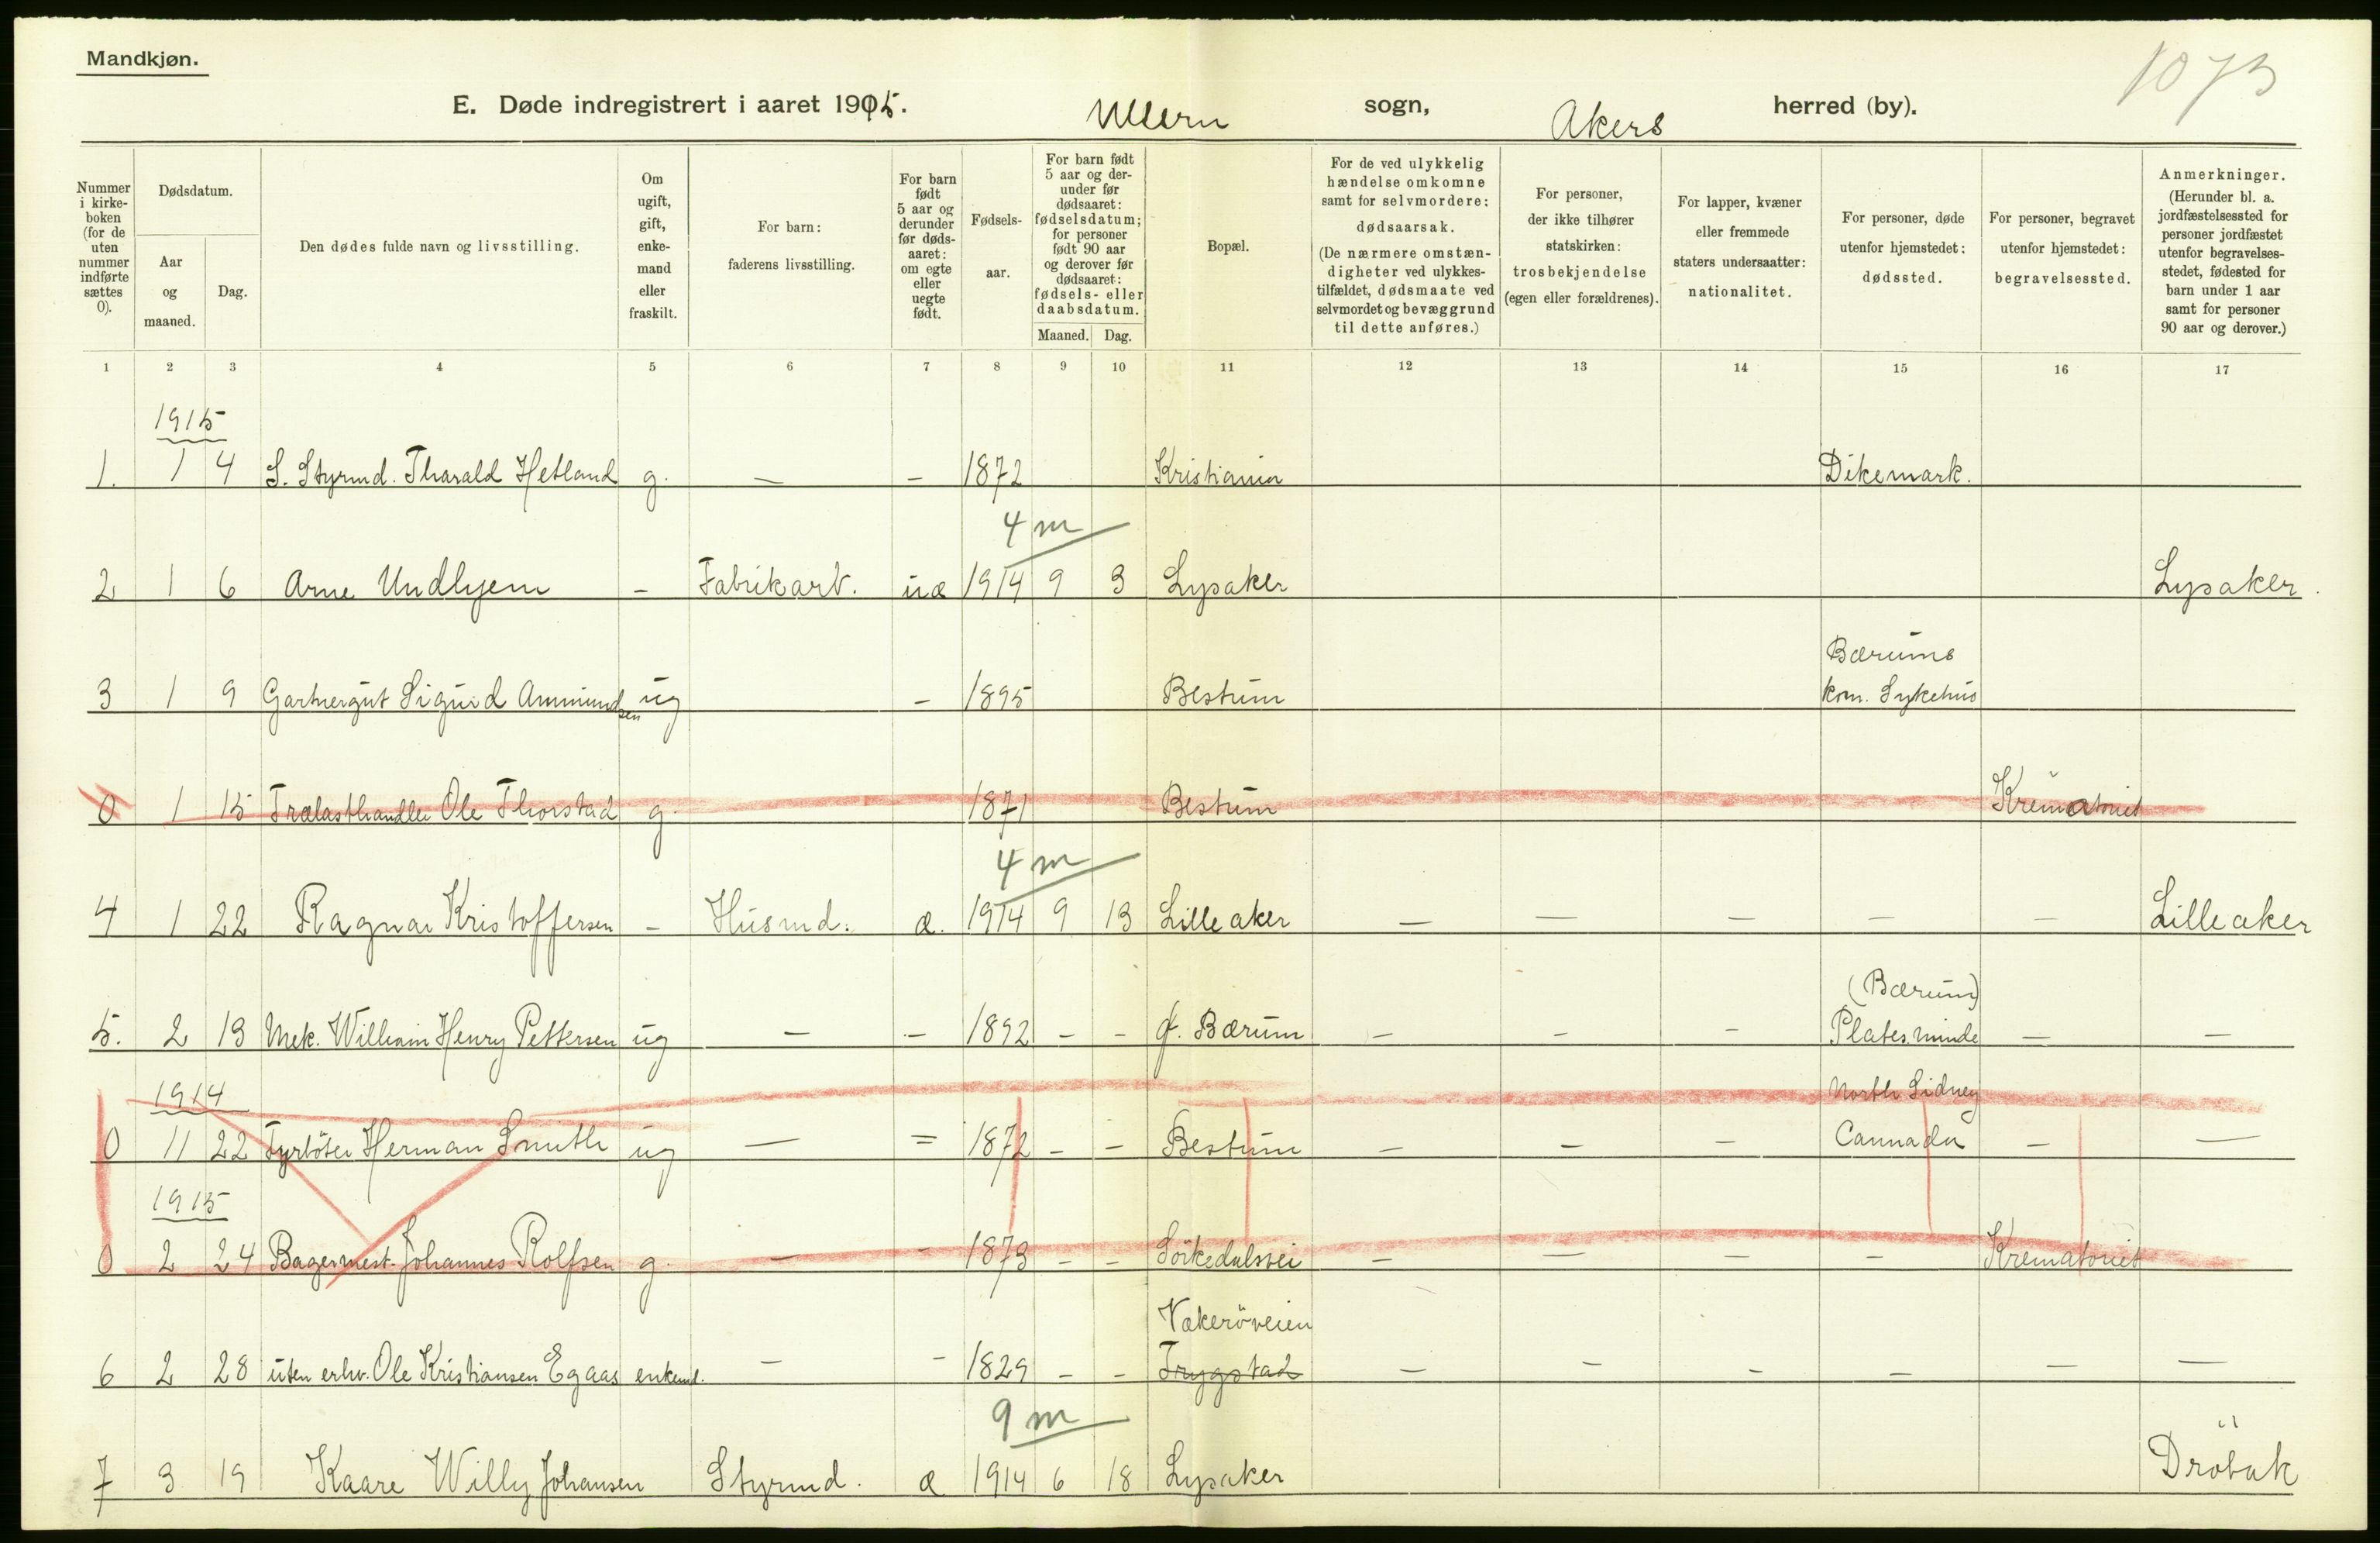 Mandkjøn.
1073
E. Døde indregistrert i aaret 1915. Ullern sogn, Akers herred (by).
Nummer i kirkeboken (for de uten nummer indførte sættes 0).
Dødsdatum.
Aar og maaned.
Dag.
Den dødes fulde navn og livsstilling.
Om ugift, gift, enkemand eller fraskilt.
For barn: faderens livsstilling.
For barn født 5 aar og derunder før dødsaaret: om egte eller uegte født.
Fødselsaar.
For barn født 5 aar og derunder før dødsaaret: fødselsdatum; for personer født 90 aar og derover før dødsaaret: fødsels- eller daabsdatum.
Maaned. Dag.
Bopæl.
For de ved ulykkelig hændelse omkomne samt for selvmordere: dødsaarsak. (De nærmere omstændigheter ved ulykkestilfældet, dødsmaate ved selvmordet og bevæggrund til dette anføres.)
For personer, der ikke tilhører statskirken: trosbekjendelse (egen eller forældrenes).
For lapper, kvæner eller fremmede staters undersaatter: nationalitet.
For personer, døde utenfor hjemstedet: dødssted.
For personer, begravet utenfor hjemstedet: begravelsessted.
Anmerkninger. (Herunder bl. a. jordfæstelsessted for personer jordfæstet utenfor begravelsesstedet, fødested for barn under 1 aar samt for personer 90 aar og derover.)
1 2 3 4 5 6 7 8 9 10 11 12 13 14 15 16 17
1915
1. 1 4 S. Styrmd. Tharald Hetland g. — – 1872 Kristiania Dikemark.
4 m
2 1 6 Arne Undlyem – Fabrikarb. uæ 1914 9 3 Lysaker Lysaker.
Bærums
3 1 9 Gartnergut Sigurd Ammundsen ug – 1895 Bestum kom. Sykehus
0 1 15 Trælasthandler Ole Thorstad g. 1871 Bestum Krematoriet
4 m
4 1 22 Ragnar Kristoffersen – Husmd. æ. 1914 9 13 Lilleaker — — — — — Lilleaker
(Bærum)
5. 2 13 Mek. William Henry Pettersen ug — – 1892 – – Bærum – – – Platesminde — —
1914 North Sidney
0 11 22 Fyrböter Herman Smith ug — = 1872 – – Bestum – – – Cannada – —
1915
0 2 24 Bagermest. Johannes Rolfsen g. — - 1873 – – Sörkedalsvei – — – – Krematoriet
Vækeröveien
6 2 28 uten erhv. Ole Kristiansen Egaas enkemd. – – 1829 – – Trygstad – – – – — —
9 m
7 3 19 Kaare Willy Johansen Styrmd. æ 1914 6 18 Lysaker Dröbak